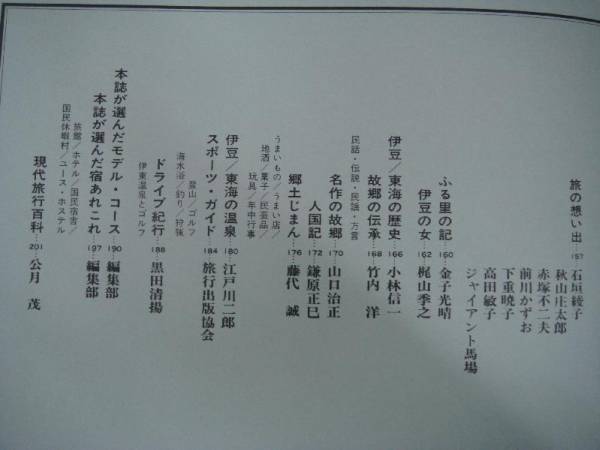 旅の想い出…157 石垣綾子
秋山庄太郎
赤塚不二夫
前川かずお
下重暁子
高田敏子
ジャイアント馬場
ふる里の記…160 金子光晴
伊豆の女…162 梶山季之
伊豆/東海の歴史…166 小林信一
故郷の伝承…168 竹内 洋
民話・伝説・民謡・方言
名作の故郷…170 山口治正
人国記…172 鎌原正巳
郷土じまん…176 藤代 誠
うまいもの/うまい店/
地酒/菓子/民芸品/
玩具/年中行事
伊豆/東海の温泉…180 江戸川二郎
スポーツ・ガイド…184 旅行出版協会
登山/ゴルフ
海水浴/釣り/狩猟
ドライブ紀行…188 黒田清揚
伊東温泉とゴルフ
本誌が選んだモデル・コース…190 編集部
本誌が選んだ宿あれこれ…197 編集部
旅館/ホテル/国民宿舎/
国民休暇村/ユース・ホステル
現代旅行百科…201 公月 茂